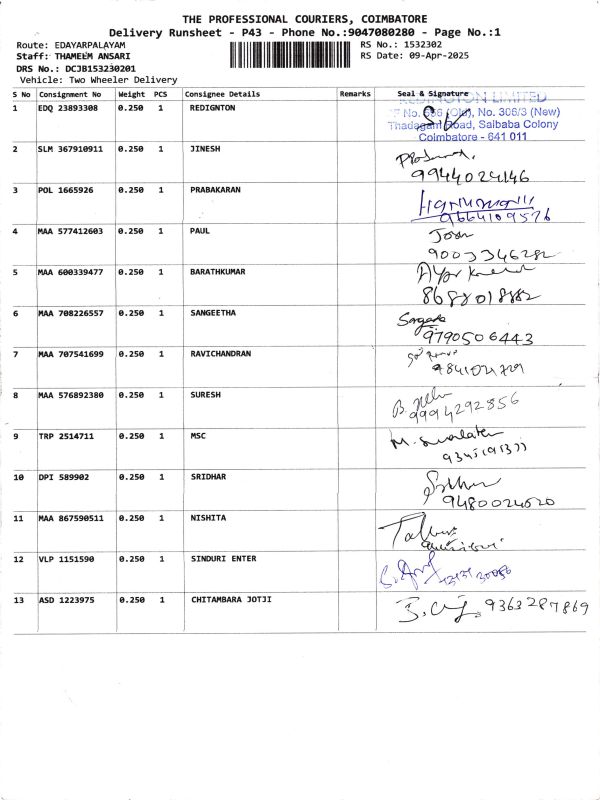 THE PROFESSIONAL COURIERS, COIMBATORE
Delivery Runsheet - P43 - Phone No.:9047080280 - Page No.:1
Route: EDAYARPALAYAM RS No.: 1532302
Staff: THAMEEM ANSARI RS Date: 09-Apr-2025
DRS No.: DCJB153230201
Vehicle: Two Wheeler Delivery
S No Consignment No Weight PCS Consignee Details Remarks Seal & Signature
REDINGTON LIMITED
1 EDQ 23893308 0.250 1 REDIGNTON
No. (Old), No. 306/3 (New)
Thadagam Road, Saibaba Colony
Coimbatore - 641 011
2 SLM 367910911 0.250 1 JINESH
9944024146
3 POL 1665926 0.250 1 PRABAKARAN
9664109576
4 MAA 577412603 0.250 1 PAUL
9003346282
5 MAA 600339477 0.250 1 BARATHKUMAR
8688018882
6 MAA 708226557 0.250 1 SANGEETHA
9790506443
7 MAA 707541699 0.250 1 RAVICHANDRAN
8 MAA 576892380 0.250 1 SURESH
9994292856
9 TRP 2514711 0.250 1 MSC
10 DPI 589902 0.250 1 SRIDHAR
9480024520
11 MAA 867590511 0.250 1 NISHITA
12 VLP 1151590 0.250 1 SINDURI ENTER
13 ASD 1223975 0.250 1 CHITAMBARA JOTJI 9363287869